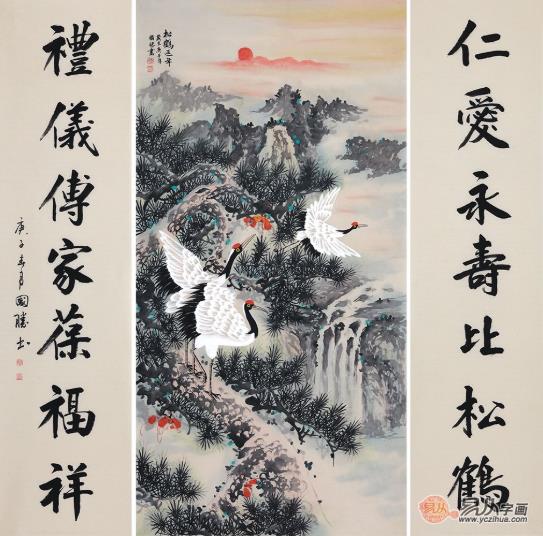 仁愛永壽比松鶴
松鶴延年
禮儀傳家葆福祥
庚子春月國勝书
易从字画
www.yczihua.com